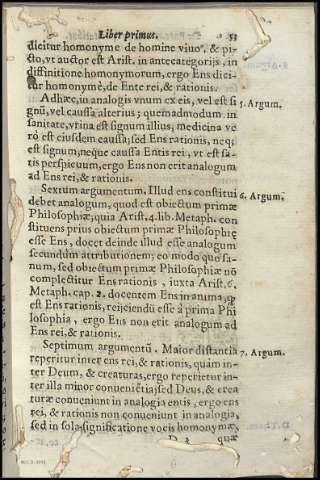 Liber primus. 53
dicitur homonyme de homine viuo, & pi-
cto, vt auctor est Arist. in antecategorijs, in
diffinitione homonymorum, ergo Ens dici-
tur homonymè, de Ente rei, & rationis.
Adhæc, in analogis vnum ex eis, vel est si 5. Argum.
gnũ, vel caussa alterius; quemadmodum in
sanitate, vrina est signum illius, medicina ve
rò est eiusdem caussa; sed Ens rationis, neq;
est signum, neque caussa Entis rei, vt est sa-
tis perspicuum, ergo Ens non erit analogum
ad Ens rei, & rationis.
Sextum argumentum. Illud ens constitui 6. Argum.
debet analogum, quod est obiectum primæ
Philosophiæ; quia Arist. 4. lib. Metaph. con
stituens prius obiectum primæ Philosophiæ
esse Ens, docet deinde illud esse analogum
secundum attributionem; eo modo quo sa-
num, sed obiectum primæ Philosophiæ nō
complectitur Ens rationis, iuxta Arist. 6.
Metaph. cap. 2. docentem Ens in anima, q
est Ens rationis, reijciendũ esse à prima Phi
losophia, ergo Ens non erit analogum ad
Ens rei, & rationis.
Septimum argumentũ. Maior distantia 7. Argum.
reperitur inter ens rei, & rationis, quàm in-
ter Deum, & creaturas, ergo reperietur in-
ter illa minor conueniẽtia; sed Deus, & crea
turæ conueniunt in analogia entis, ergo ens
rei, & rationis non conueniunt in analogia,
sed in sola significatione vocis homonymæ,
D 3 quæ